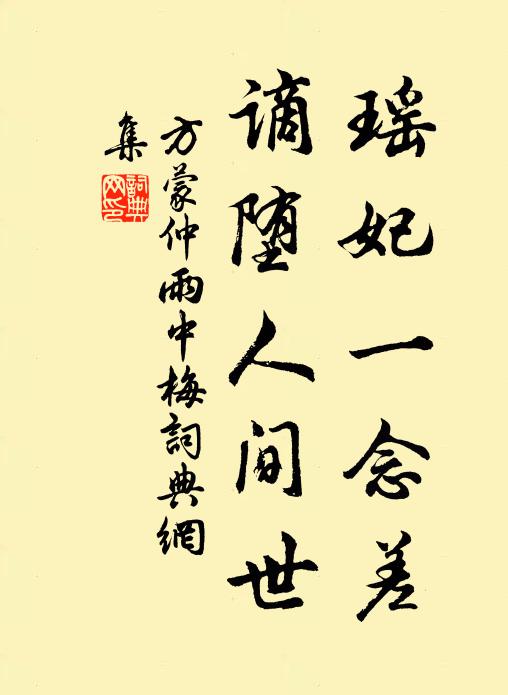 瑶妃一念差
谪堕人间世
方蒙仲雨中梅詞典網
集
詞典網印